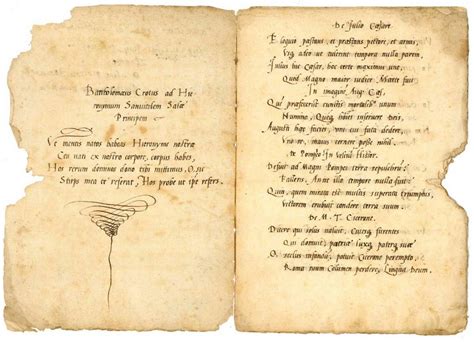 Bartholomæus Crotus ad Hie
ronymum Sanuitalem Salæ
Principem
Ve mentis natos habeas Hieronyme nostræ
Ceu nati ex nostro corpore, corpus habes,
Hos rerum domino dono tibi mittimus, O, si
Stirps mea te referat, Hos probe ut ipse refers.
De Julio Cæsare
Eloquio præstans, et pectore, et armis,
Vix adeo ut tulerint tempora nulla parem.
Julius hic Cæsar, hoc certe maximus uno,
Quod Magno maior iudice Marte fuit
In imaginē Aug. Cæs.
Qui præscurit cunctis mortalibus unum
Nummo, Quæq habet inseruere
Augusti hæc facies, vivum cui fata dedere,
Vivere, mavis cernere posse nihil.
De Pompeo In
Defuit ad Magni Pompei terra sepulcrum?
Falleris, Anne illi tempora nulla fuit?
Quin, quem mirata est multis superata triumphis,
Victorem erubuit condere terra suum.
De M. T. Cicerone.
Dicere qui soluit, Cives furentes
Qui domuit, patriæ luxq pater suæ
O scelus infandū, potuit Cicerone perempto,
Roma suum Columen perdere, Lingua Deum.